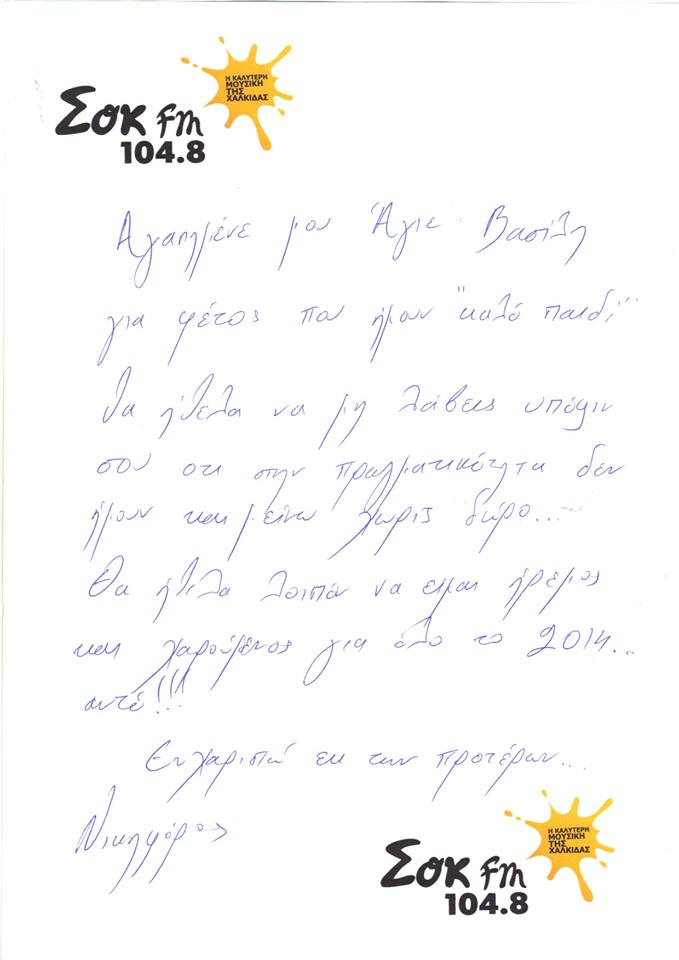 Σοκ FM
104.8
Η ΚΑΛΥΤΕΡΗ
ΜΟΥΣΙΚΗ
ΤΗΣ
ΧΑΛΚΙΔΑΣ
Αγαπημένε μου Άγιε Βασίλη
για φέτος που ήμουν "καλό παιδί"
θα ήθελα να μη λάβεις υπόψιν
σου οτι στην πραγματικότητα δεν
ήμουν και μείνω χωρίς δώρο...
Θα ήθελα λοιπόν να ειμαι ήρεμος
και χαρούμενος για όλο το 2014..
αυτό!!!
Ευχαριστώ εκ των προτέρων...
Νικηφόρος
Σοκ FM
104.8
Η ΚΑΛΥΤΕΡΗ
ΜΟΥΣΙΚΗ
ΤΗΣ
ΧΑΛΚΙΔΑΣ